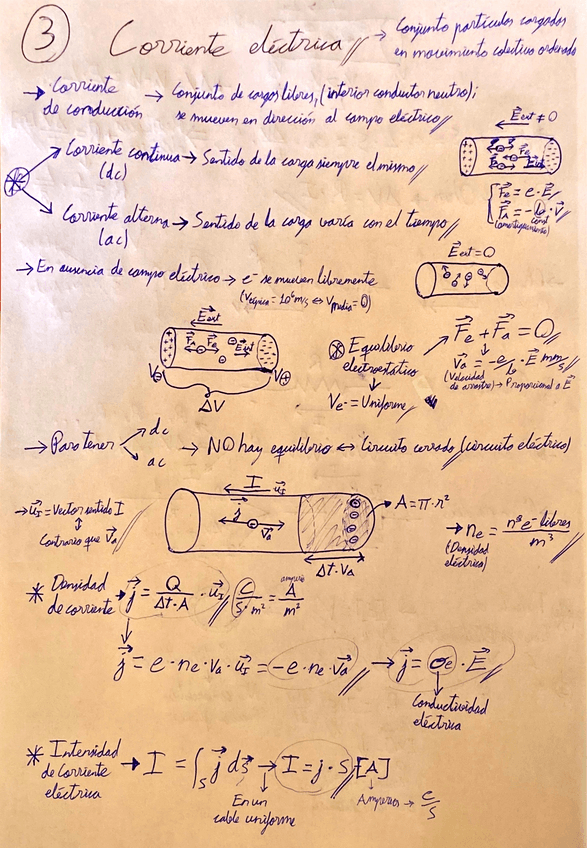 3 Corriente eléctrica // → Conjunto partículas cargadas
en movimiento colectivo ordenado
→ Corriente de conducción → Conjunto de cargas libres, (interior conductor neutro);
se mueven en dirección al campo eléctrico //
E⃗ext ≠ 0
Corriente continua → Sentido de la carga siempre el mismo //
(dc)
F⃗e = e · E⃗
F⃗A = -b · v⃗
cónst
(amortiguamiento)
Corriente alterna → Sentido de la carga varía con el tiempo //
(ac)
→ En ausencia de campo eléctrico → e⁻ se mueven libremente
(Vtípica = 10⁶ m/s ⇔ Vmedia = 0)
E⃗ext = 0
E⃗ext
F⃗A F⃗e E⃗int
V⊖ V⊕
ΔV
⊛ Equilibrio electrostático
F⃗e + F⃗a = 0 //
v⃗a = -e/b · E⃗ mm/s
(Velocidad de arrastre) → Proporcional a E⃗
Ve⁻ = Uniforme //
→ Para tener dc
ac
→ NO hay equilibrio ⇔ Circuito cerrado (circuito eléctrico)
I u⃗I
→ u⃗I = Vector sentido I
Contrario que v⃗a //
j⃗
v⃗a
A = π·r²
Δt · Va
→ ne = nº e⁻ libres / m³ //
(Densidad eléctrica)
* Densidad de corriente → j⃗ = Q / Δt · A · u⃗I // C / s · m² = A / m²
amperio
j⃗ = e · ne · va · u⃗I = -e · ne · v⃗a // → j⃗ = σe · E⃗ //
Conductividad eléctrica
* Intensidad de corriente eléctrica → I = ∫S j⃗ ds⃗ → I = j · S // [A]
En un cable uniforme
Amperios → C/s